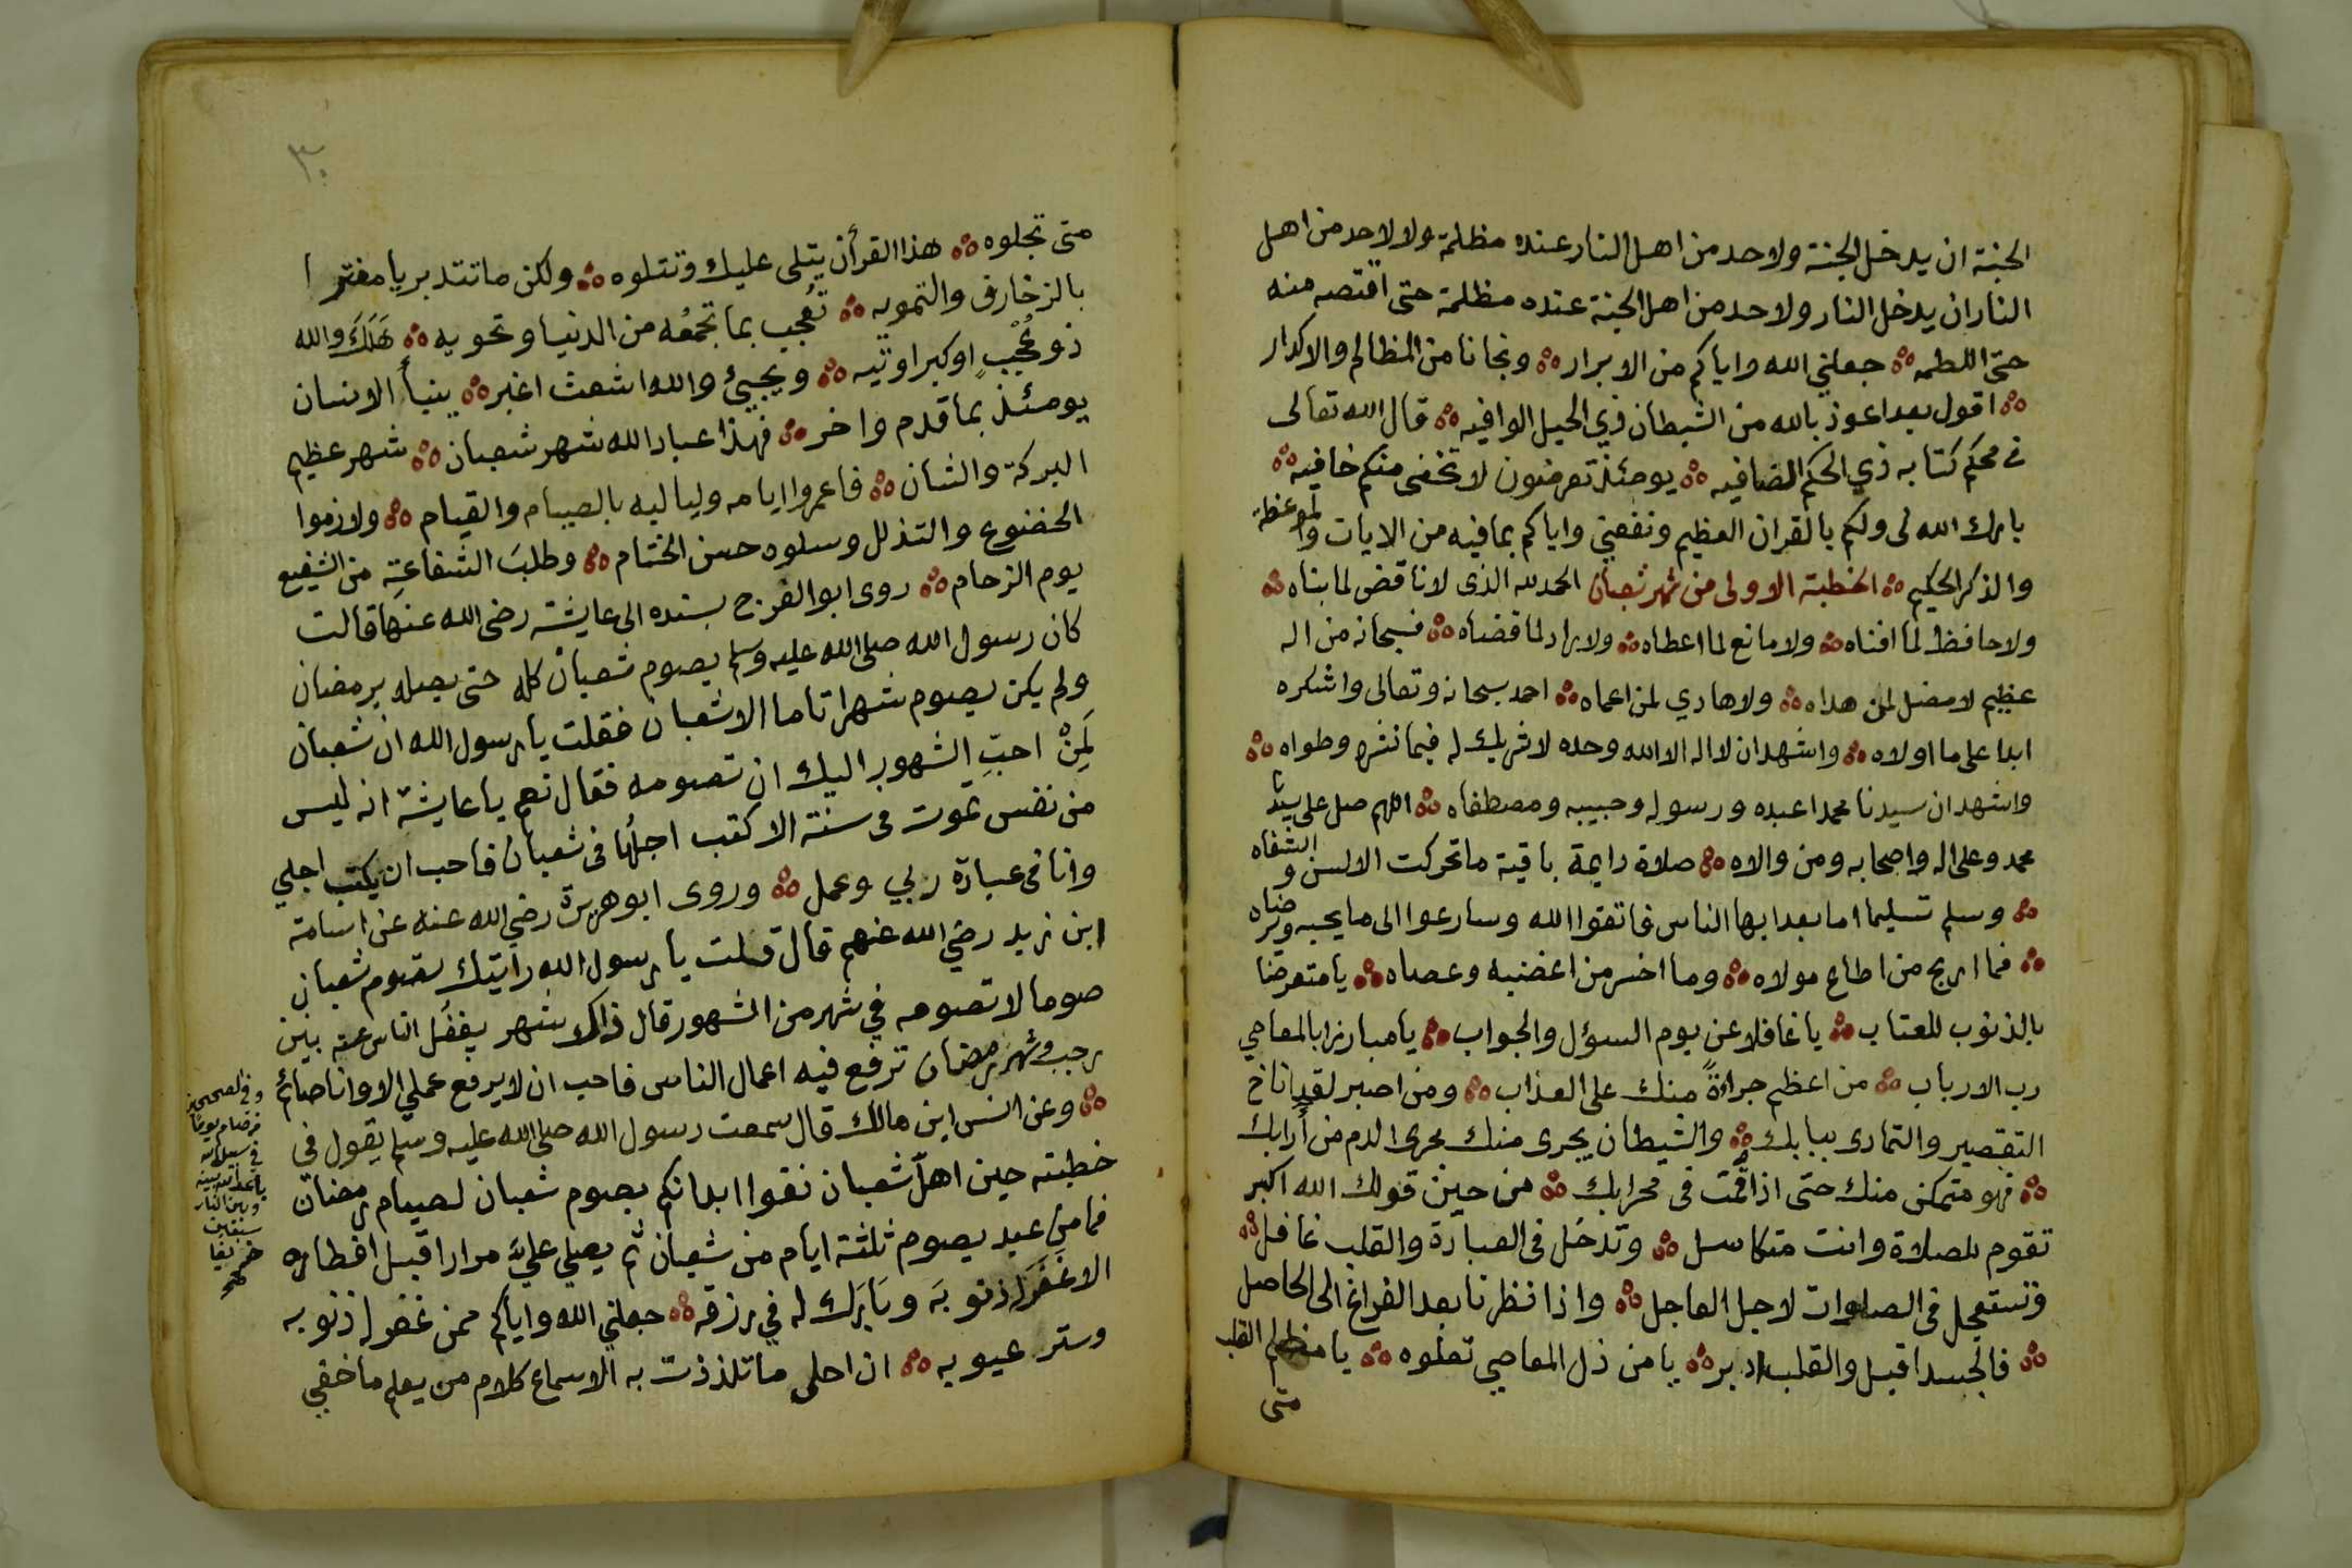 الجنة ان يدخل الجنة ولاحد من اهل النار عنده مظلمة ولا لاحد من اهل
النار ان يدخل النار ولاحد من اهل الجنة عنده مظلمة حتى اقتصه منه
حتى اللطمه ؞ جعلني الله واياكم من الابرار ؞ ونجانا من المظالم والاكدار
؞ اقول بعد اعوذ بالله من الشيطان ذي الحيل الوافيه ؞ قال الله تعالى
في محكم كتابه ذي الحكم الضافيه ؞ يومئذ تعرضون لا تخفى منكم خافيه ؞
بارك الله لى ولكم بالقران العظيم ونفعني واياكم بما فيه من الايات والموعظه
والذكر الحكيم ؞ الخطبة الاولى من شهر شعبان الحمد لله الذى لا ناقض لما بناه ؞
ولا حافظ لما افناه ؞ ولا مانع لما اعطاه ؞ ولا راد لما قضاه ؞ فسبحانه من اله
عظيم لا مضل لمن هداه ؞ ولا هادي لمن اعماه ؞ احمد سبحانه وتعالى واشكره
ابدا على ما اولاه ؞ واشهد ان لا اله الا الله وحده لا شريك له فيما نشره وطواه ؞
واشهد ان سيدنا محمدا عبده ورسوله وحبيبه ومصطفاه ؞ اللهم صل على سيدنا
محمد وعلى اله واصحابه ومن والاه ؞ صلاة دايمة باقية ما تحركت الالسن والشفاه
؞ وسلم تسليما اما بعد ايها الناس فاتقوا الله وسارعوا الى ما يحبه ويرضاه
؞ فما اربح من اطاع مولاه ؞ وما اخسر من اغضبه وعصاه ؞ يا متعرضا
بالذنوب للعتاب ؞ يا غافلا عن يوم السؤل والجواب ؞ يا مبارزا بالمعاصي
رب الارباب ؞ من اعظم جراءةً منك على العذاب ؞ ومن اصبر لقد اناخ
التقصير والتمادى ببابك ؞ والشيطان يجرى منك مجرى الدم من أرابك
؞ فهو متمكن منك حتى اذا قمت فى محرابك ؞ من حين قولك الله اكبر
تقوم للصلاة وانت متكاسل ؞ وتدخل فى العبادة والقلب غافل ؞
وتستعجل فى الصلوات لاجل العاجل ؞ واذا نظرنا بعد الفراغ الى الحاصل
؞ فالجسد اقبل والقلب ادبر ؞ يا من ذل المعاصي تعلوه ؞ يا مظلم القلب
متى
٣٠
متى تجلوه ؞ هذا القرأن يتلى عليك وتتلوه ؞ ولكن ما تتدبر يا مغتر ا
بالزخارف والتمويه ؞ تُعجب بما تجمعُه من الدنيا وتحويه ؞ هَلَكَ والله
ذو عُجْبٍ او كبر اوتيه ؞ ويجيئ والله اشعث اغبر ؞ ينبأ الانسان
يومئذ بما قدم واخر ؞ فهذا عباد الله شهر شعبان ؞ شهر عظيم
البركة والشان ؞ فاعمروا ايامه ولياليه بالصيام والقيام ؞ ولازموا
الخضوع والتذلل وسلوه حسن الختام ؞ وطلبَ الشفاعةِ من الشفيع
يوم الزحام ؞ روى ابو الفرج بسنده الى عايشة رضى الله عنها قالت
كان رسول الله صلى الله عليه وسلم يصوم شعبان كله حتى يصله برمضان
ولم يكن يصوم شهرا تاما الا شعبان فقلت يا رسول الله ان شعبان
لَمِنْ احبّ الشهور اليك ان تصومه فقال نعم يا عايشة انه ليس
من نفس تموت فى سنة الا كتب اجلُها فى شعبان فاحب ان يكتب اجلي
وانا فى عبادة ربي وعمل ؞ وروى ابو هريرة رضي الله عنه عن اسامة
ابن زيد رضي الله عنهم قال قلت يا رسول الله رأيتك تصوم شعبان
صوما لا تصومه في شهر من الشهور قال ذاك شهر يغفُل الناس عنه بين
رجب وشهر رمضان ترفع فيه اعمال الناس فاحب ان لا يرفع عملي الا وانا صائم
؞ وعن انس ابن مالك قال سمعت رسول الله صلى الله عليه وسلم يقول فى
خطبته حين اهلّ شعبان نقوا ابدانكم بصوم شعبان لصيام رمضان
فما من عبد يصوم ثلثة ايام من شعبان ثم يصلي عليَّ مرارا قبل افطاره
الا غفر له ذنوبَه وبَارَك له في رزقه ؞ جعلني الله واياكم ممن غفر له ذنوبه
وستر عيوبه ؞ ان احلى ما تلذذت به الاسماع كلام من يعلم ما خفي
وفى الصحيحين
من صام يوما
في سبيل الله
باعد الله بينه
وبين النار
سبعين
خريفا